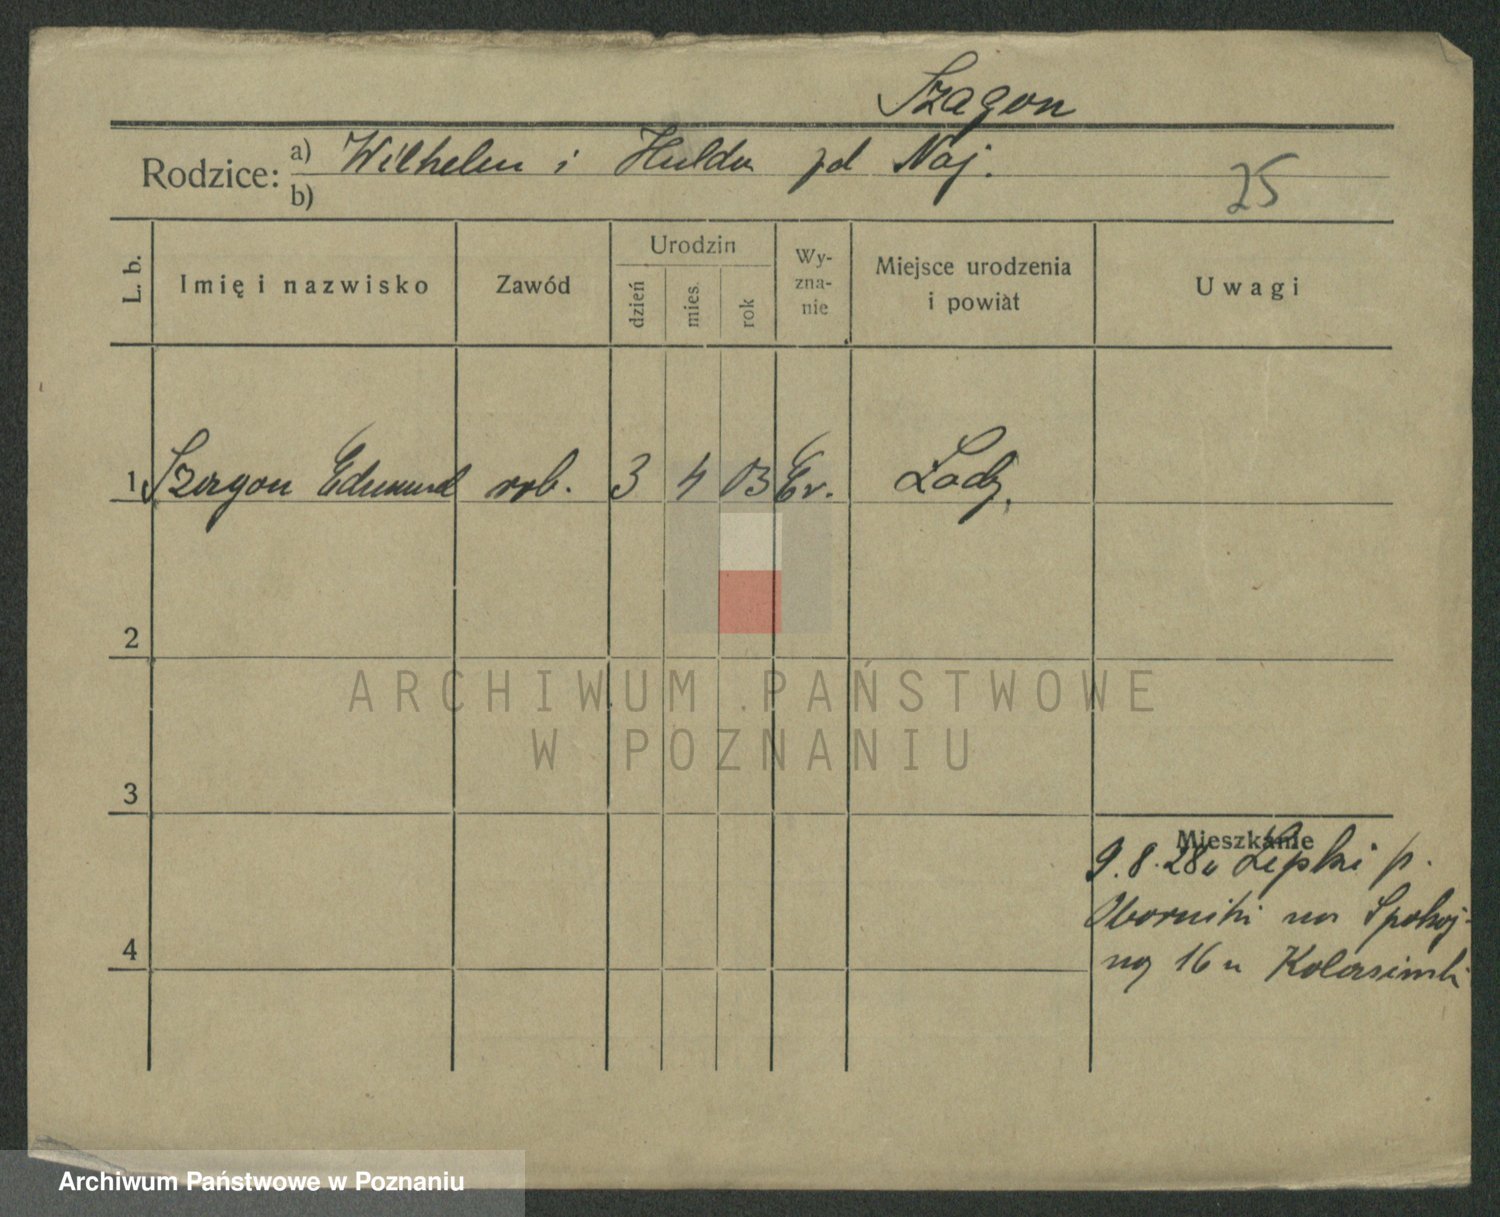 Szagon
Rodzice: a) Wilhelm i Hulda zd Naj.
b)
25
L. b.
Imię i nazwisko
Zawód
Urodzin
dzień
mies.
rok
Wy-
zna-
nie
Miejsce urodzenia
i powiat
Uwagi
1 Szagon Edmund rob. 3 4 03 Ev. Lodz.
2
ARCHIWUM PAŃSTWOWE
W POZNANIU
3
Mieszkanie
9.8.28 Lipki p.
Oborniki na Spokoj-
ną 16 u
4
Archiwum Państwowe w Poznaniu